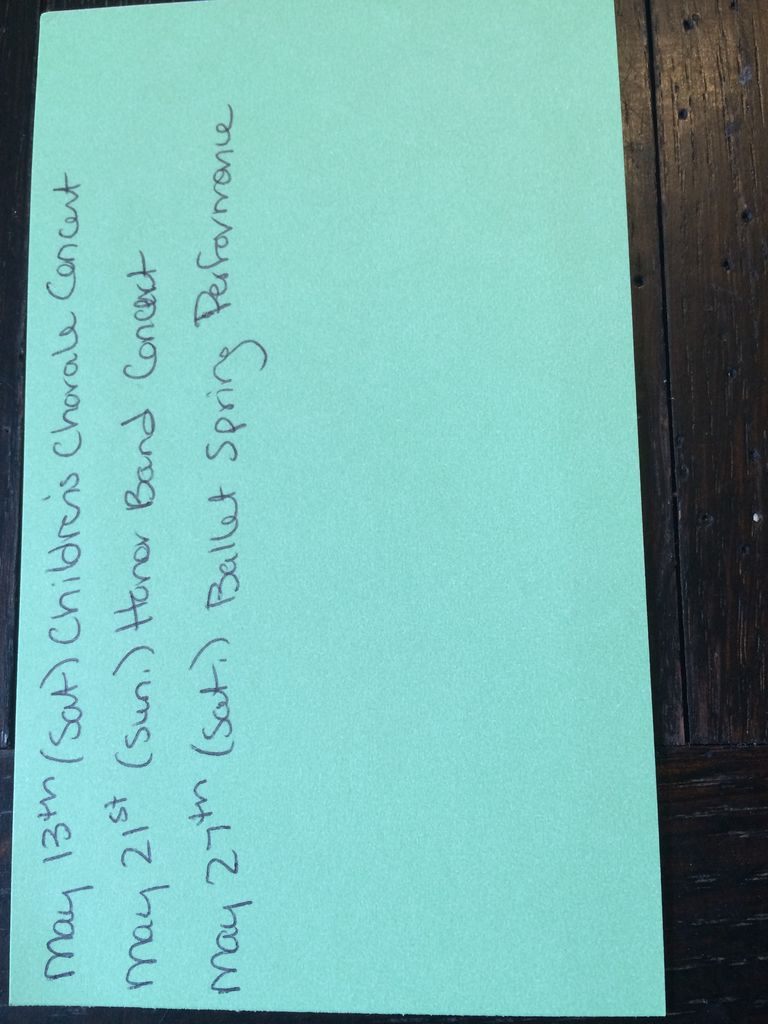 May 13th (Sat) Children's Chorale Concert
May 21st (Sun.) Honor Band Concert
May 27th (Sat.) Ballet Spring Performance